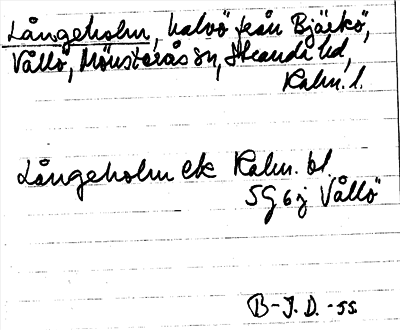 Långeholm, halvö från Bjärkö,
Vållö, Mönsterås sn, Stranda hd,
Kalm. l.
Långeholm ek Kalm. bl
5G 6j Vållö
B-J.D. -55.